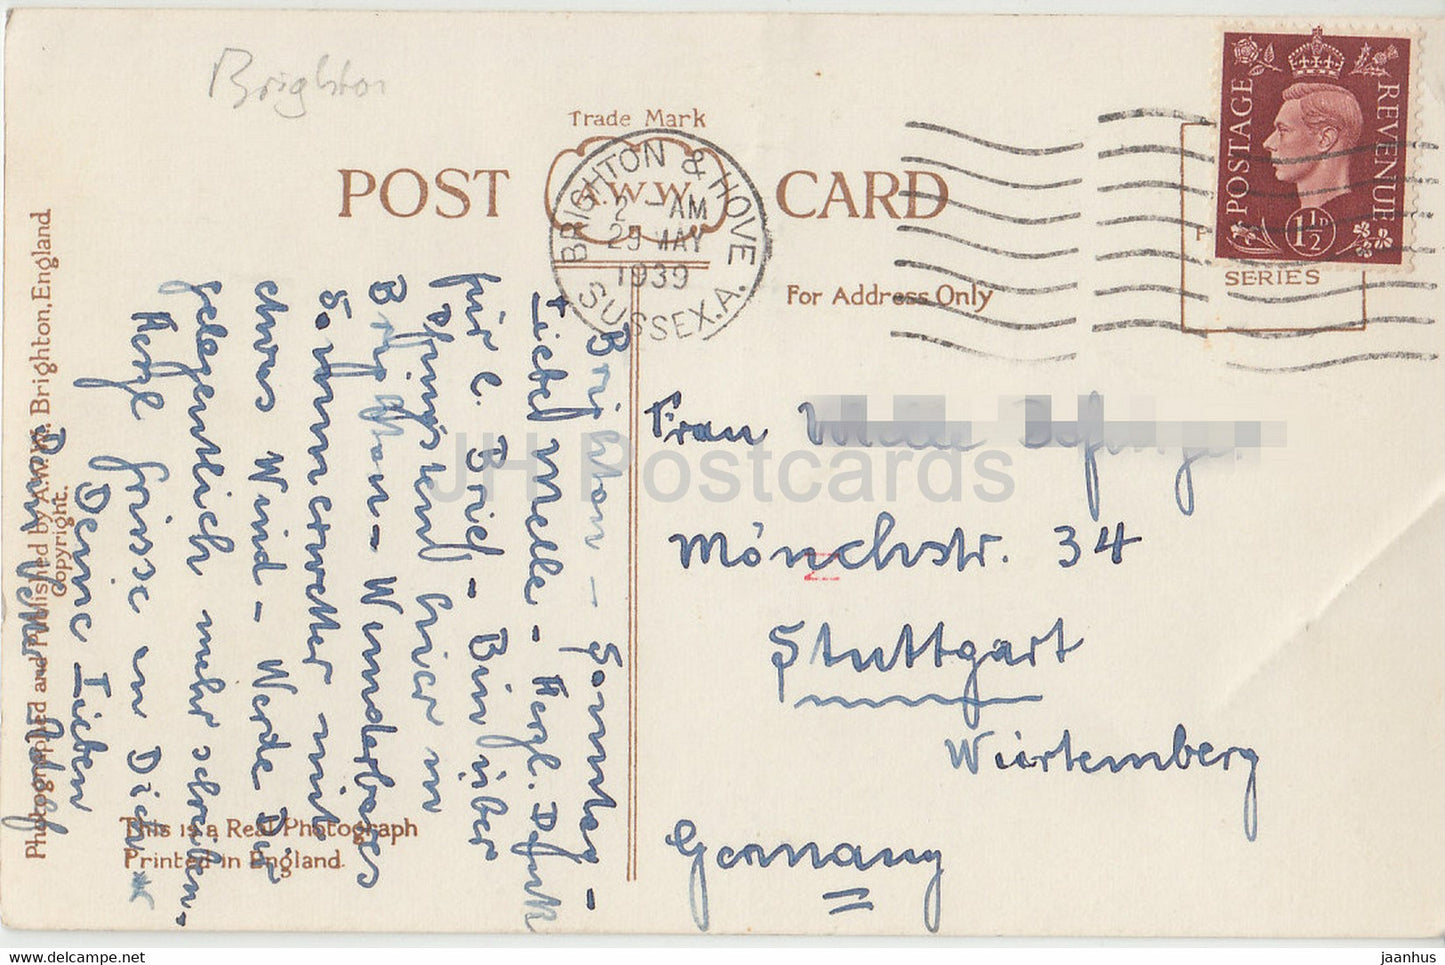 Brighton
Trade Mark
POST CARD
A.W.W.
BRIGHTON & HOVE
2 - AM
29 MAY
1939
SUSSEX.A.
POSTAGE REVENUE
1½D
SERIES
For Address Only
Photographed and Published by A.W.W. Brighton, England
Copyright.
This is a Real Photograph
Printed in England.
Brighton - Sonntag -
Liebe Melle - Herzl. Dank
für l. Brief - Bin über
Pfingsten hier in
Brighton - Wunderbares
Sommerwetter mit
etwas Wind - Werde Dir
gelegentlich mehr schreiben -
Herzl Grüsse an Dich &
Deine Lieben
Dein
Frau
Mönchstr. 34
Stuttgart
Würtemberg
Germany
JH Postcards
jaanhus